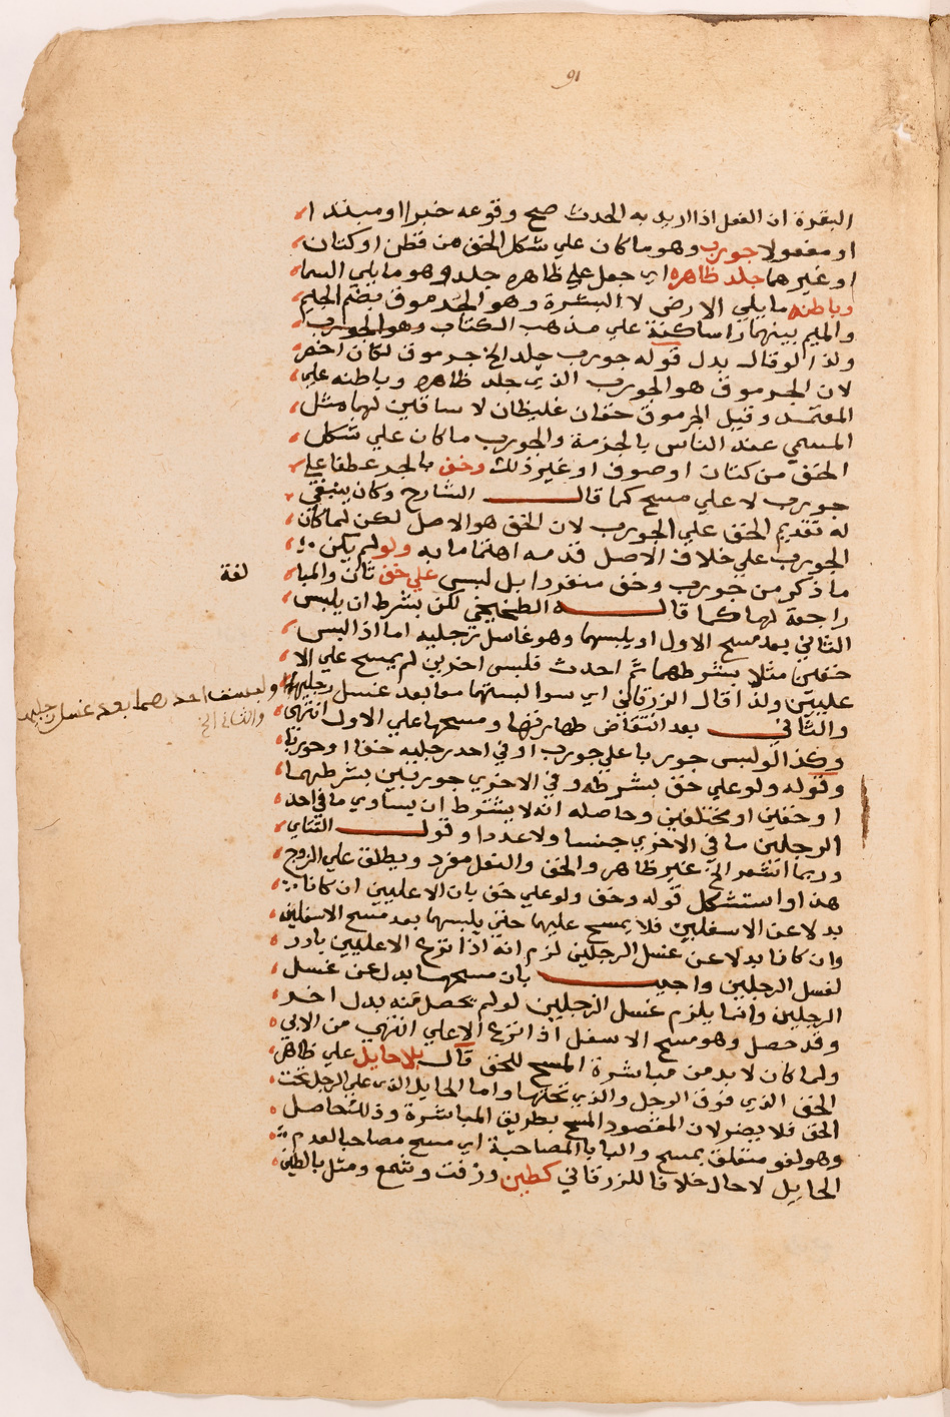 91
البقرة ان الفعل اذا اريد به الحدث صح وقوعه خبرا او مبتدا
او مفعولا جورب وهو ما كان علي شكل الخف من قطن او كتان
او غيرهما جلد ظاهره اي جعل علي ظاهره جلد وهو ما يلي السما
وباطنه ما يلي الارض لا البشرة وهو الجرموق بضم الجيم
والميم بينهما را ساكنة علي مذهب الكتاب وهو الجورب
ولذا لو قال بدل قوله جورب جلد الخ جرموق لكان اخصر
لان الجرموق هو الجورب الذي جلد ظاهره وباطنه علي
المعتمد وقيل الجرموق خفان غليظان لا ساقين لهما مثل
المسمي عند الناس بالجزمة والجورب ما كان علي شكل
الخف من كتان او صوف او غير ذلك وخف بالجر عطفا علي
جورب لا علي مسح كما قال الشارح وكان ينبغي
له تقديم الخف علي الجورب لان الخف هو الاصل لكن لما كان
الجورب علي خلاف الاصل قدمه اهتماما به ولو لم يكن
ما ذكر من جورب وخف منفردا بل لبس علي خف ثان والمبا
لغة
راجعة لهما كما قاله الطخيخي لكن بشرط ان يلبس
الثاني بعد مسح الاول او يلبسهما وهو غاسل رجليه اما اذا لبس
خفين مثلا بشرطهما ثم احدث فلبس اخرين لم يمسح علي الا
عليين ولذا قال الزرقاني اي سوا لبستهما معا بعد غسل رجليه
او لبست احدهما بعد غسل رجليه
والثاني الخ
والثاني بعد انتقاض طهارتها ومسحها علي الاول انتهي
وكذا لو لبس جوربا علي جورب او في احد رجليه خفا او جوربا
وقوله ولو علي خف بشرطه وفي الاخري جوربين بشرطهما
او خفين او مختلفين وحاصله انه لا يشترط ان يساوي ما في احد
الرجلين ما في الاخري جنسا ولا عددا وقول التتاي
وربما اشعر الخ غير ظاهر والخف والنعل مفرد ويطلق علي الزوج
هذا واستشكل قوله وخف ولو علي خف بان الاعليين ان كانا
بدلا عن الاسفلين فلا يمسح عليهما حتي يلبسهما بعد مسح الاسفلين
وان كانا بدلا عن غسل الرجلين لزم انه اذا نزع الاعليين بادر
لغسل الرجلين واجيب بان مسحهما بدل عن غسل
الرجلين وانما يلزم غسل الرجلين لو لم يحصل عنه بدل اخر
وقد حصل وهو مسح الاسفل اذا نزع الاعلي انتهي من الابي
ولما كان لا بد من مباشرة المسح للخف قال بلا حايل علي ظاهر
الخف الذي فوق الرجل والذي تحتها واما الحايل الذي علي الرجل تحت
الخف فلا يضر لان المقصود المسح بطريق المباشرة وذلك حاصل
وهو لغو متعلق بمسح والبا بالمصاحبة اي مسح مصاحبا لعدم
الحايل لا حال خلافا للزرقاني كطين وزفت وشمع ومثل بالطين